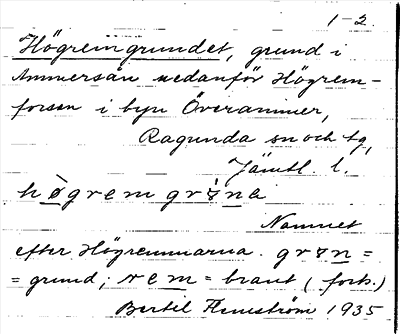 1-2.
Högremgrundet, grund i
Ammersån nedanför Högrem-
forsen i byn Överammer,
Ragunda sn och tg,
Jämtl. l.
högrem
Namnet
efter Högremmarna.
= grund; rem = brant (fork.)
Bertil Flemström 1935